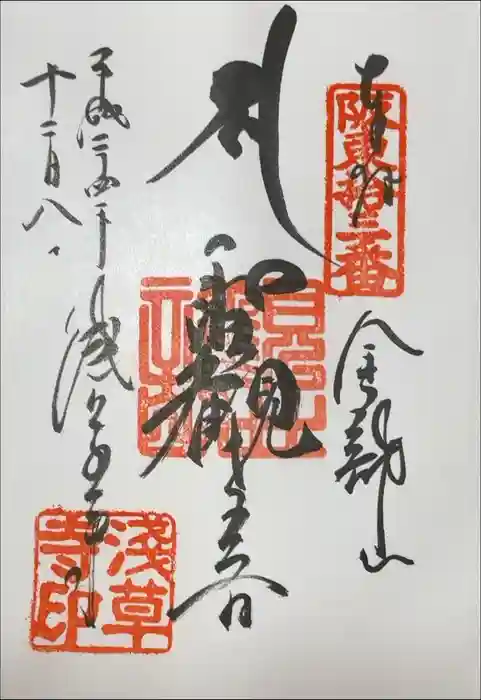 奉拝
阪東拾三番
金龍山
聖観世音
浅草寺
平成二十四年
十二月八日
淺草
寺印